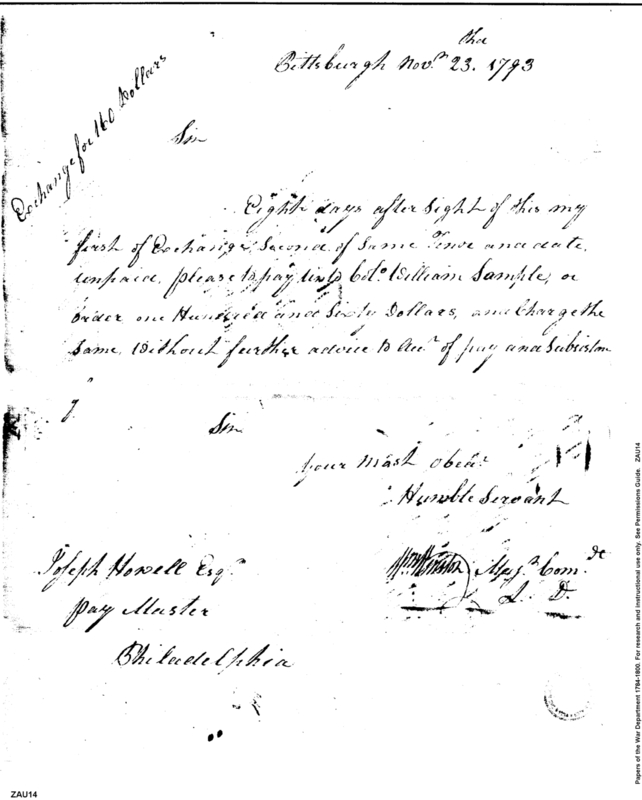 Exchange for 160 Dollars
Pittsburgh Novr. 23. 1793
Sir
Eight days after Sight of this my
first of Exchange, Second of Same Tenor and date
unpaid, please to pay unto Colo. William Sample, or
order one Hundred and Sixty Dollars, and Charge the
Same, Without further advice to Acct. of pay and Subsistence
Sir
your most obedt.
Humble Servant
Joseph Howell Esqr.
Pay Master
Philadelphia
Majr. Comdt
L. D.
ZAU14
Papers of the War Department 1784-1800. For research and instructional use only. See Permissions Guide. ZAU14